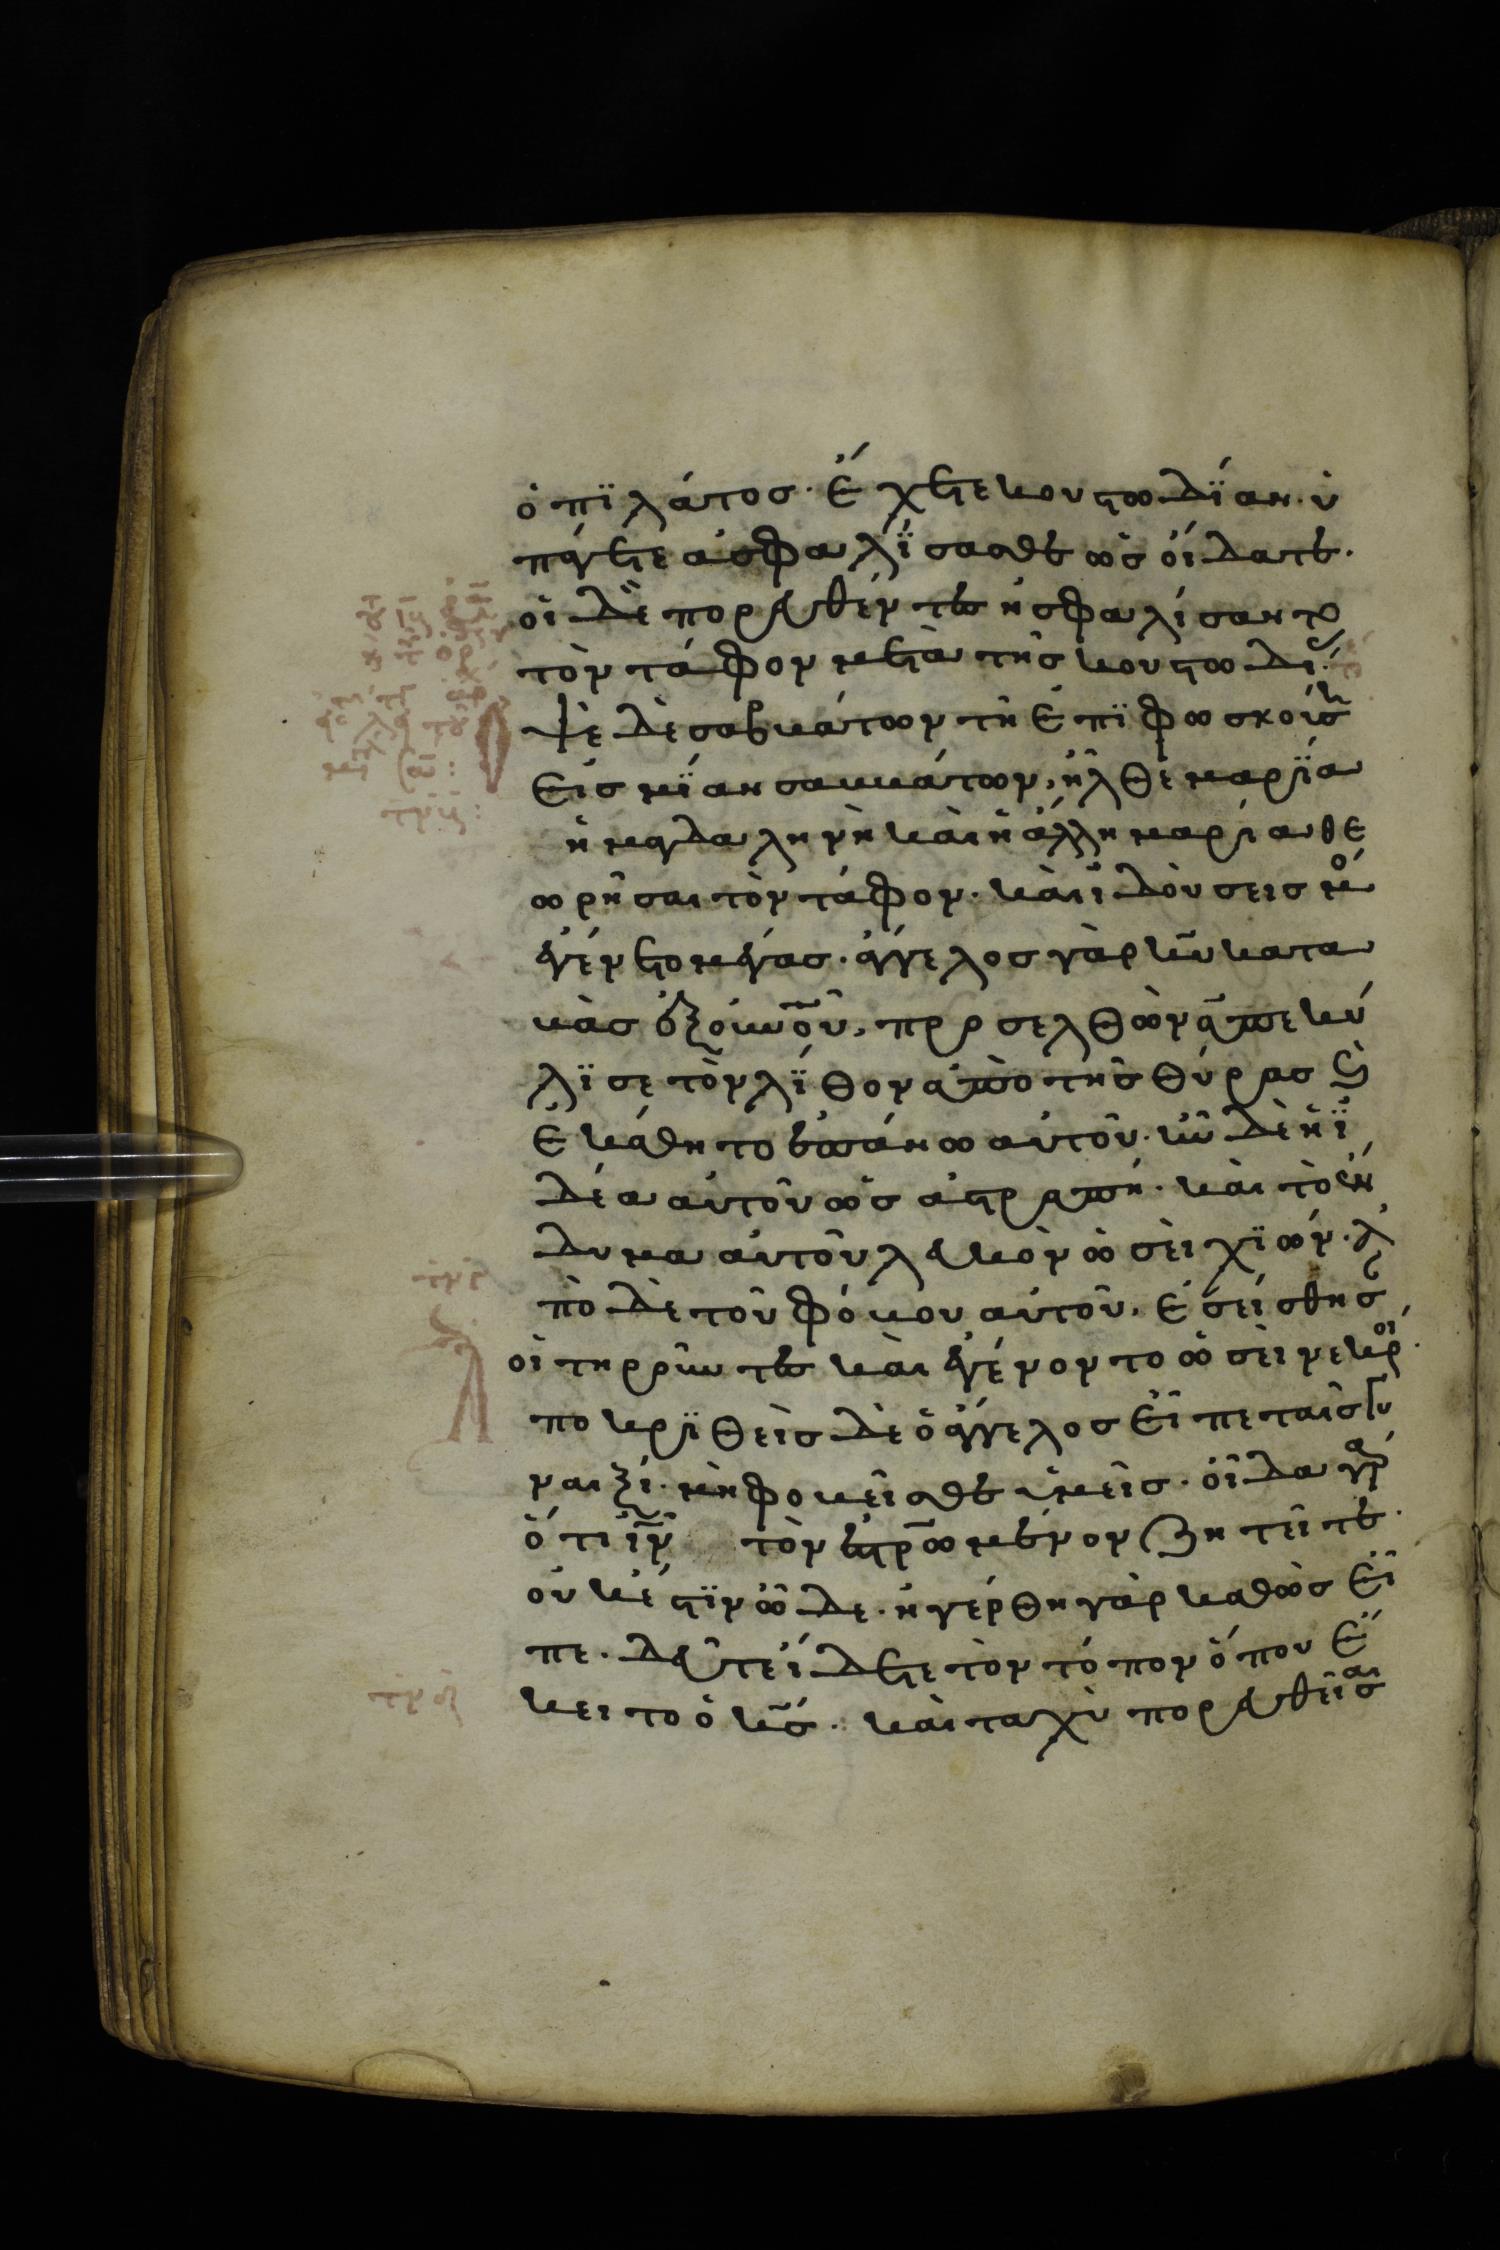 ὁ πϊλάτος· ἔχετε κουστωδΐαν· ὑ
πάγετε ἀσφαλΐσασθε ὡς οἴδατε·
οἱ δὲ πορευθέντες ἠσφαλίσαντο
τὸν τάφον μετὰ τῆς κουστωδί
ψὲ δὲ σαββάτων τῇ ἐπϊφωσκούσῃ
εἰς μΐαν σαββάτων, ἦλθε μαρΐα
ἡ μαγδαληνὴ καὶ ἡ ἄλλη μαρία θε
ωρῆσαι τὸν τάφον· καὶ ἰδοὺ σεισμὸ
ἐγένετο μέγας· ἄγγελος γὰρ κ̅υ̅ κατα
βὰς ἐξ ο̅υ̅ν̅ο̅ῦ̅, προσελθὼν ἀπεκύ
λϊσε τὸν λΐθον ἀπὸ τῆς θύρας ϗ
ἐκάθητο ἐπάνω αὐτοῦ· ἦν δὲ ἡ ἰ̈
δέα αὐτοῦ ὡς ἀστραπή· καὶ τὸ ἔν
δυμα αὐτοῦ λευκὸν ὡσεὶ χϊών· ἀ
πὸ δὲ τοῦ φόβου αὐτοῦ, ἐσείσθησ
οἱ τηροῦντες καὶ ἐγένοντο ὡσεὶ νεκροί·
ποκρϊθεὶς δὲ ὁ ἄγγελος εἶπε ταῖς γυ
ναιξί· μὴ φοβεῖσθε ὑμεῖς· οἶδα γὰρ
ὅτι ι̅ν̅ τὸν ἐσ̅τ̅ρωμένον ζητεῖτε·
οὐκ ἔστϊν ὧδε· ἠγέρθη γὰρ καθὼς εἶ
πε· δεῦτε ἴδετε τὸν τόπον ὅπου ἔ
κειτο ὁ κ̅ς̅· καὶ ταχὺ πορευθεῖσαι